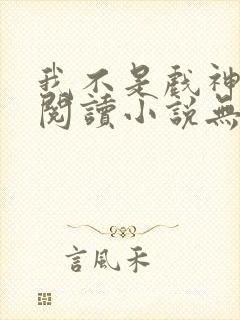 我不是戲神
閱讀小說無
言風禾